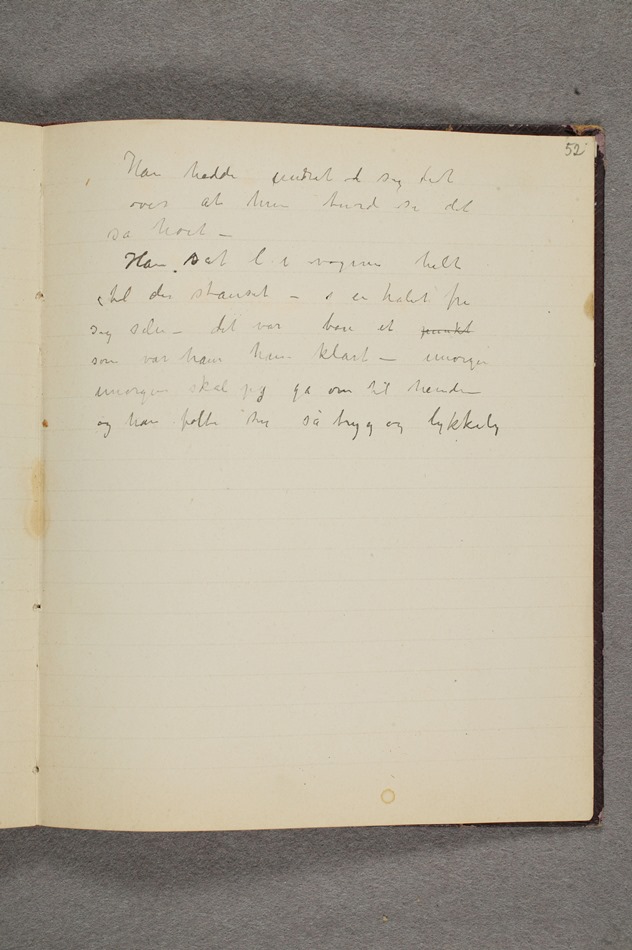 52
Han hadde undret sig lidt
over at hun turd si det
så høit –
Han sat l i vognen helt
til den stanset – i en halvt fra
sig selv – det var bare et punkt
som var ham klart – imorgen
imorgen skal jeg gå om til hende
og han følte sig så tryg og lykkelig